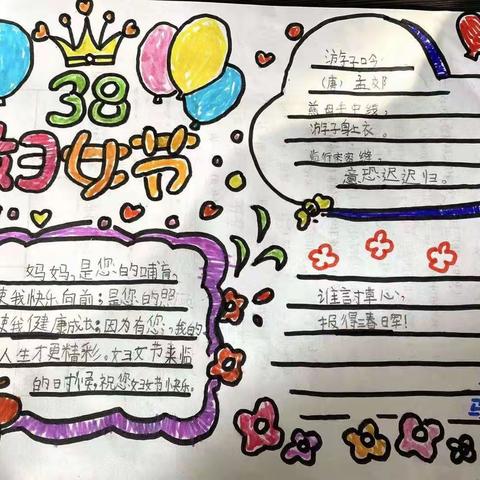 38
妇女节
妈妈，是您的哺育，
使我快乐向前；是您的照
使我健康成长；因为有您；我的
人生才更精彩。妇女节来临
的日时候，祝您妇女节快乐。
游子吟
（唐）孟郊
慈母手中线，
游子身上衣。
临行密密缝，
意恐迟迟归。
谁言寸草心，
报得三春日军！